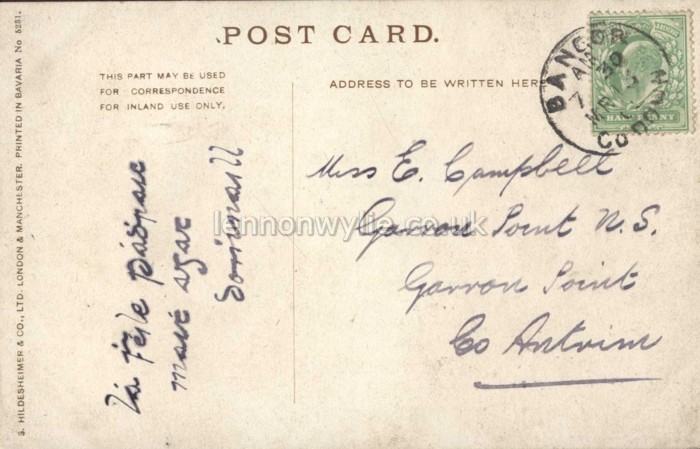 POST CARD.
THIS PART MAY BE USED
FOR CORRESPONDENCE
FOR INLAND USE ONLY.
ADDRESS TO BE WRITTEN HERE
BANGOR
CO DOWN
HALFPENNY
Miss E. Campbell
Garron Point N.S.
Garron Point
Co Antrim
Lá Féile Pádraic
lannonwylie.co.uk
S. HILDESHEIMER & CO., LTD. LONDON & MANCHESTER. PRINTED IN BAVARIA No 5231.